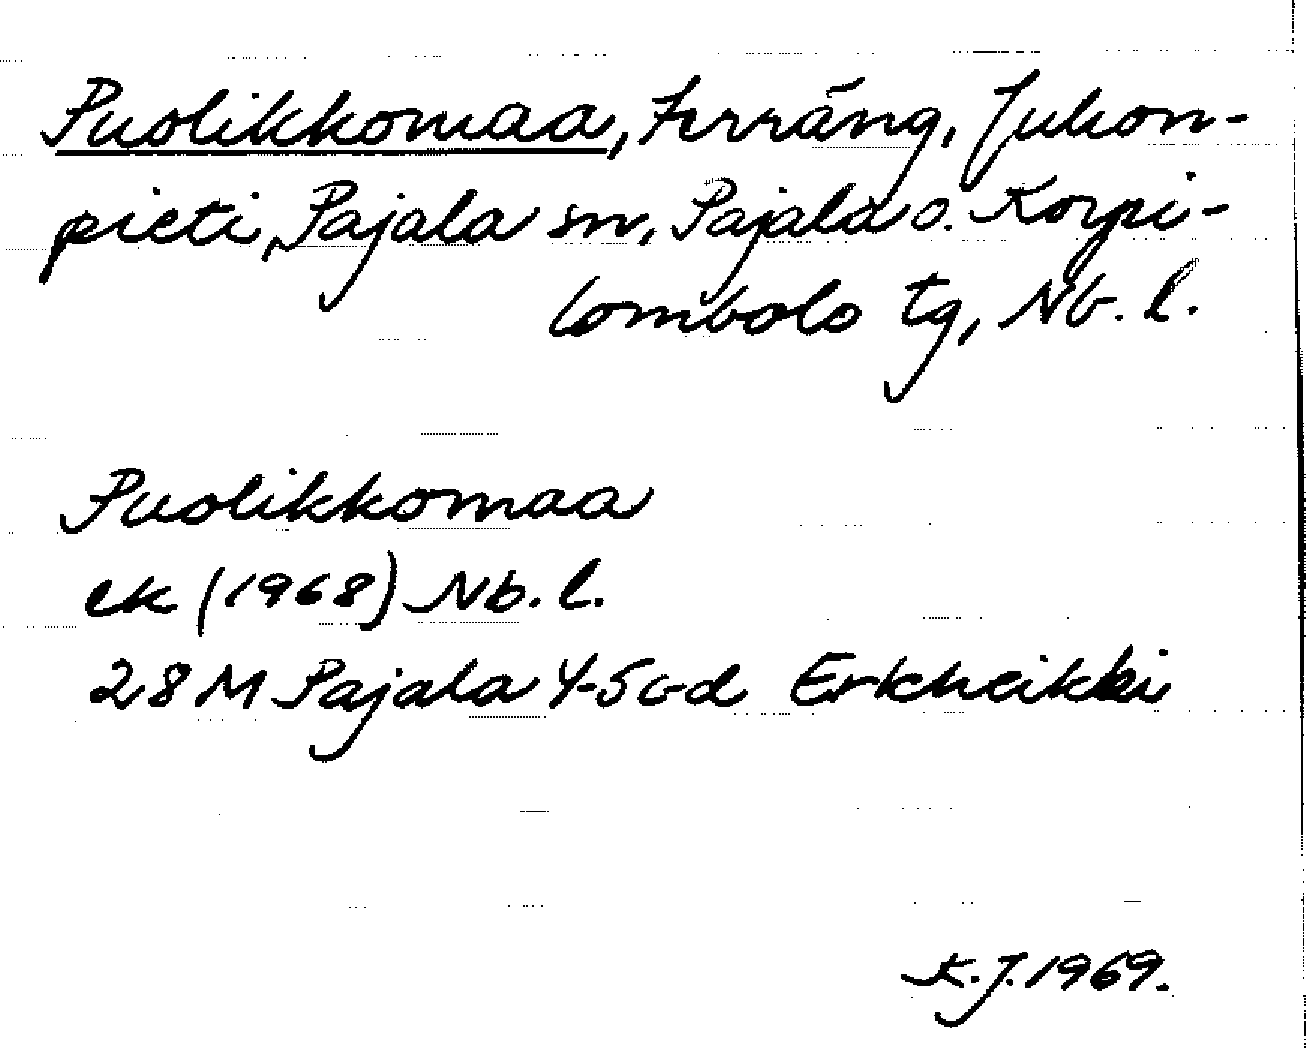 Puolikkomaa, terräng, Juhon-
pieti, Pajala sn, Pajala o. Korpi-
lombolo tg, Nb. l.
Puolikkomaa
ek (1968) Nb. l.
28 M Pajala 4-5 c-d Erkheikki
K. J. 1969.